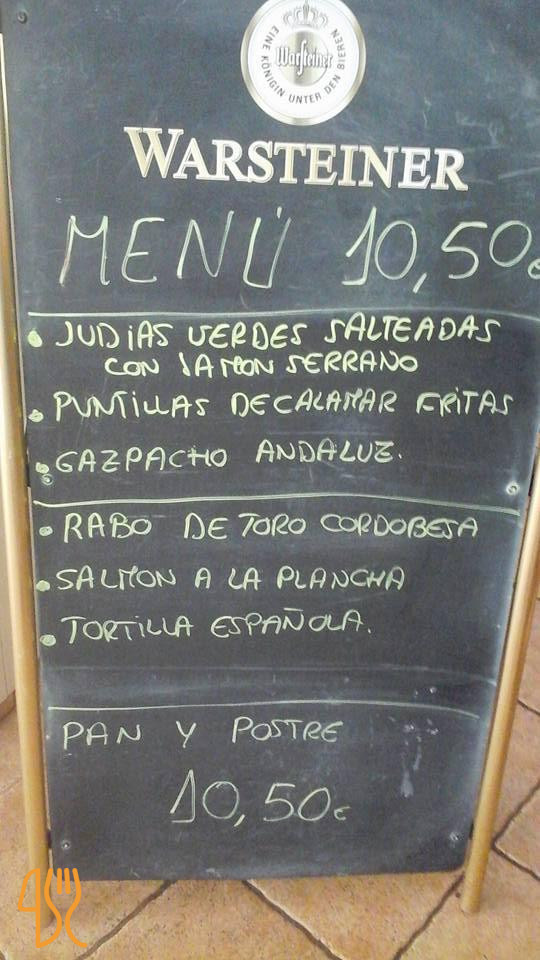 EINE KÖNIGIN UNTER DEN BIEREN
Warsteiner
WARSTEINER
MENÚ 10,50€
• JUDIAS VERDES SALTEADAS
CON JAMON SERRANO
• PUNTILLAS DE CALAMAR FRITAS
• GAZPACHO ANDALUZ.
• RABO DE TORO CORDOBESA
• SALMON A LA PLANCHA
• TORTILLA ESPAÑOLA.
PAN Y POSTRE
10,50€